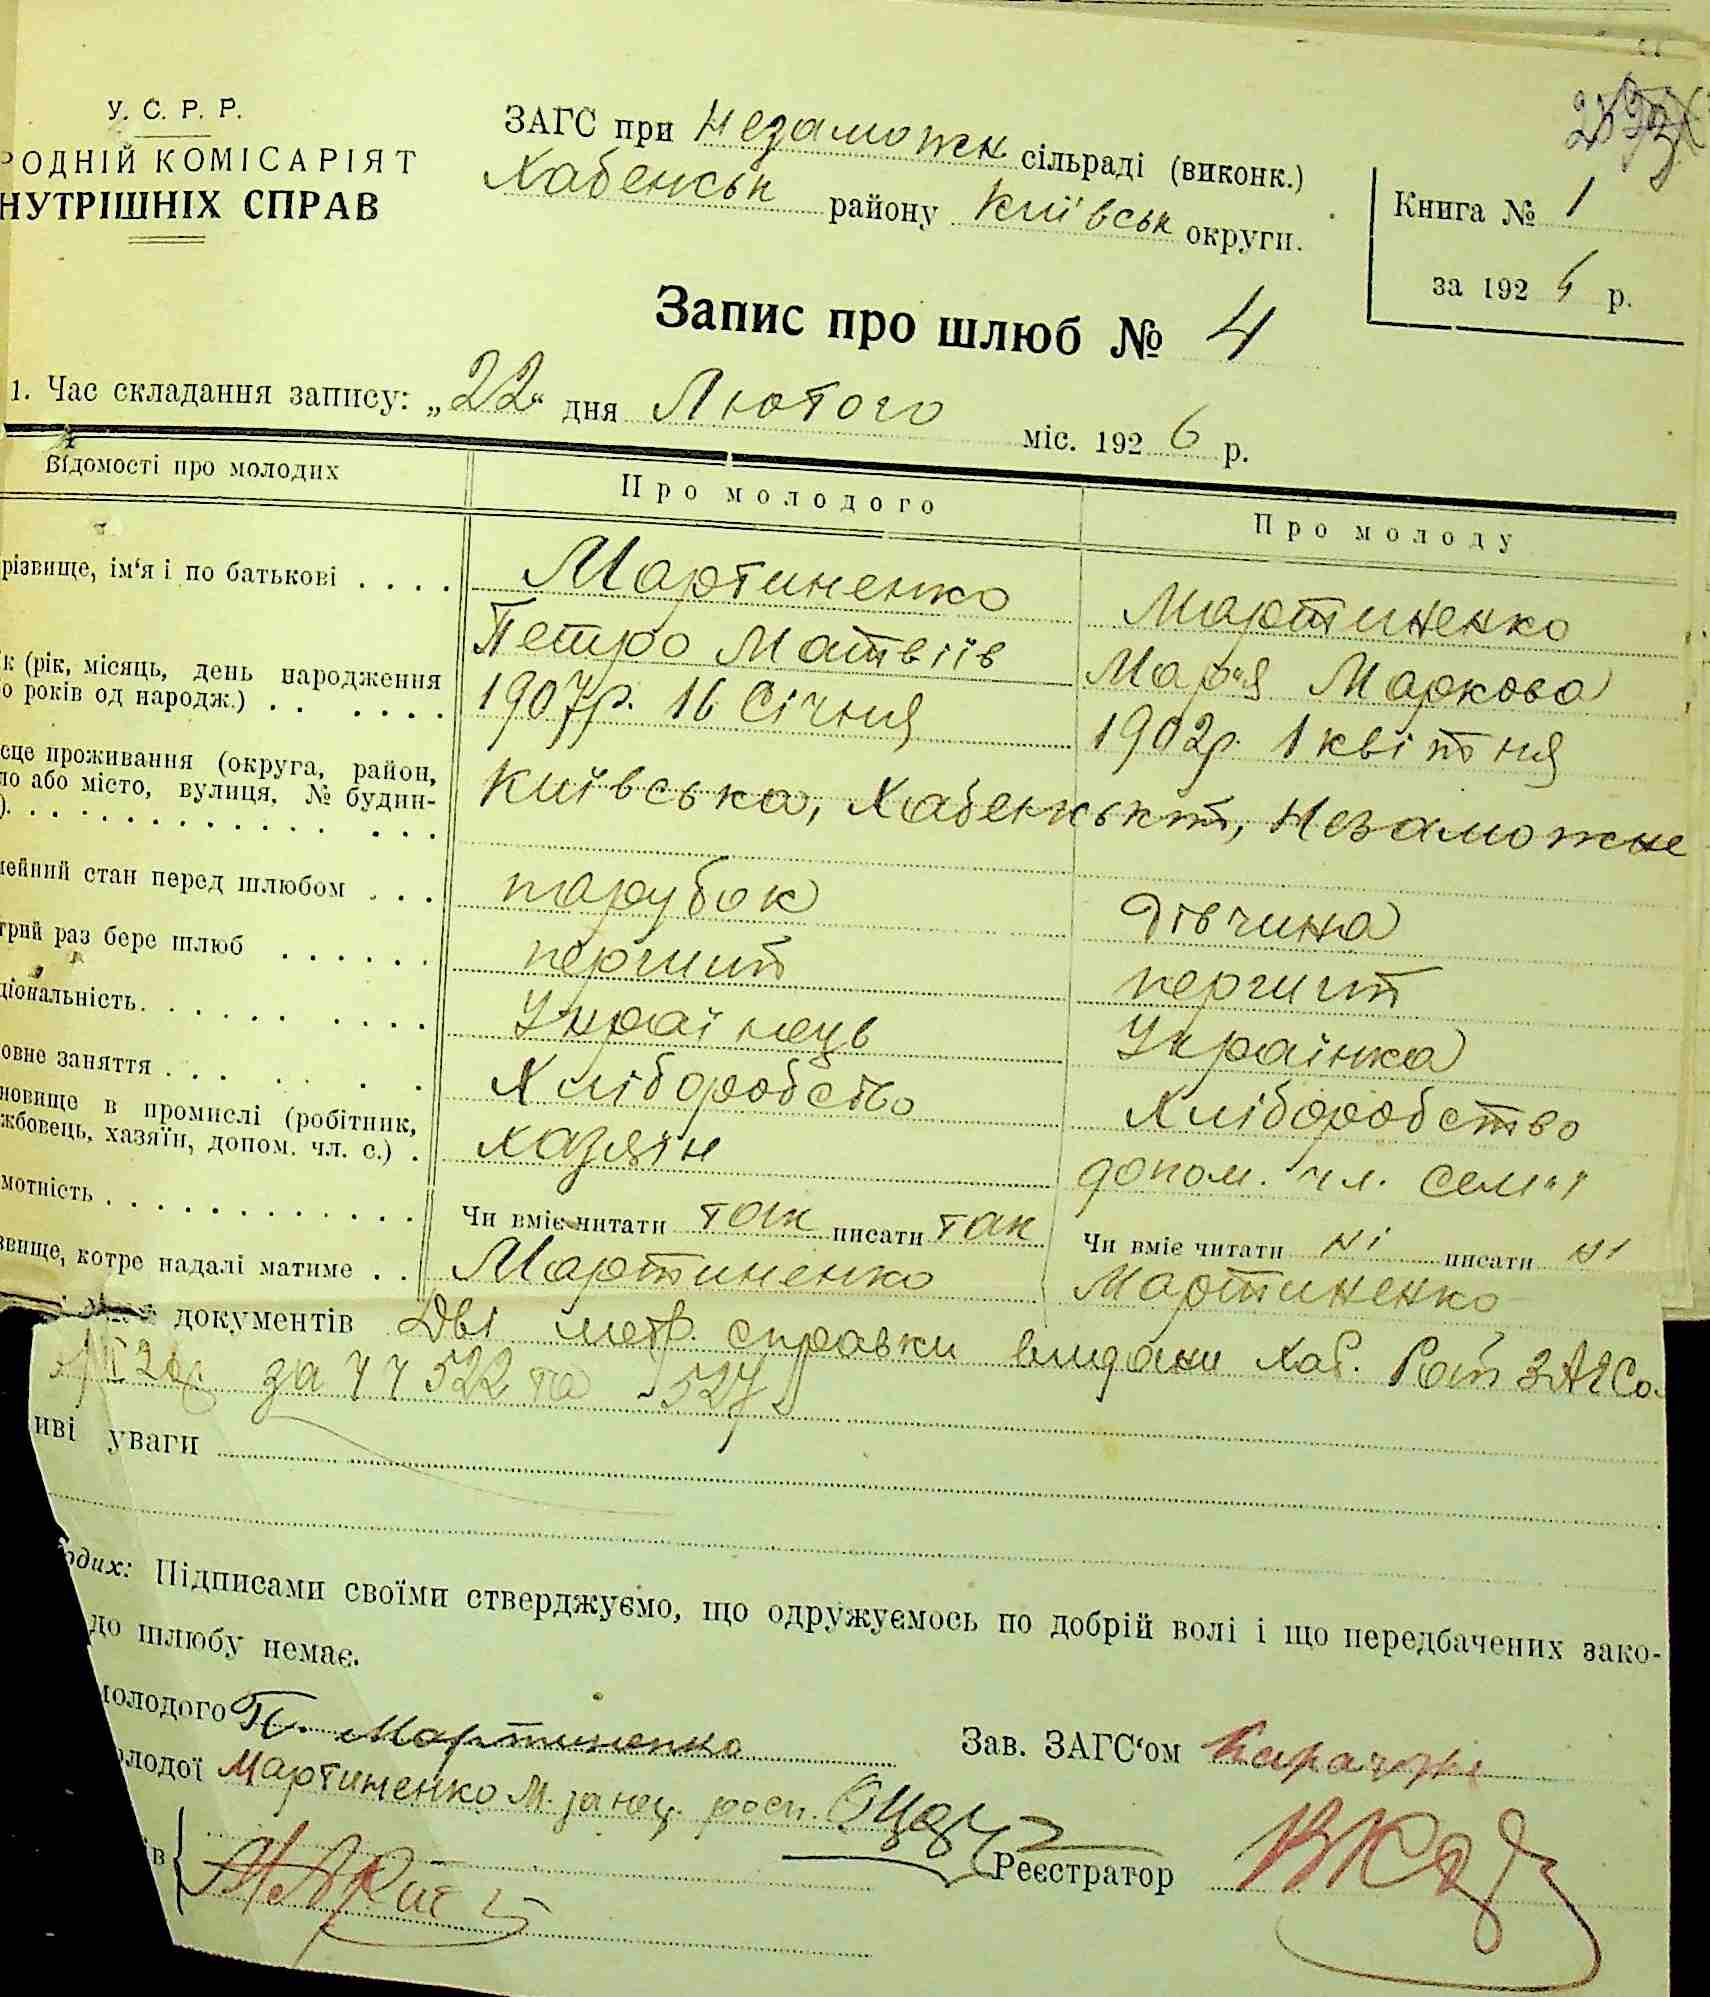 У. С. Р. Р.
РОДНІЙ КОМІСАРІЯТ
НУТРІШНІХ СПРАВ
ЗАГС при Незаможн сільраді (виконк.)
Хабенськ району Київськ округи.
Книга № 1
за 192 р.
Запис про шлюб № 4
1. Час складання запису: „22“ дня Лютого міс. 1926 р.
Відомості про молодих Про молодого Про молоду
різвище, ім‘я і по батькові . . . . Мартиненко Мартиненко
Петро Матвіїв Мар'я Маркова
к (рік, місяць, день народження
о років од народж.) . . . . . . 1907р. 16 Січня 1902р. 1 квітня
сце проживання (округа, район,
ло або місто, вулиця, № будин-
). Київська, Хабенський, Незаможне
мейний стан перед шлюбом . . . парубок дівчина
трий раз бере шлюб . . . . . . перший перший
ціональність. . . . . . . . . . Українець Українка
овне заняття . . . . . . Хліборобство Хліборобство
новище в промислі (робітник,
жбовець, хазяїн, допом. чл. с.) . хазяїн допом. чл. сем'ї
мотність . . . . . . . . . . . . . Чи вміє читати так писати так Чи вміє читати ні писати ні
звище, котре надалі матиме . . Мартиненко Мартиненко
документів Дві метр. справки видани Хаб. Рай ЗАГСо.
за чч 522 та 527
иві уваги
одих: Підписами своїми стверджуємо, що одружуємось по добрій волі і що передбачених зако-
до шлюбу немає.
молодого П. Мартиненко Зав. ЗАГС‘ом
олодої Мартиненко М. за неп. росп.
ів Реєстратор